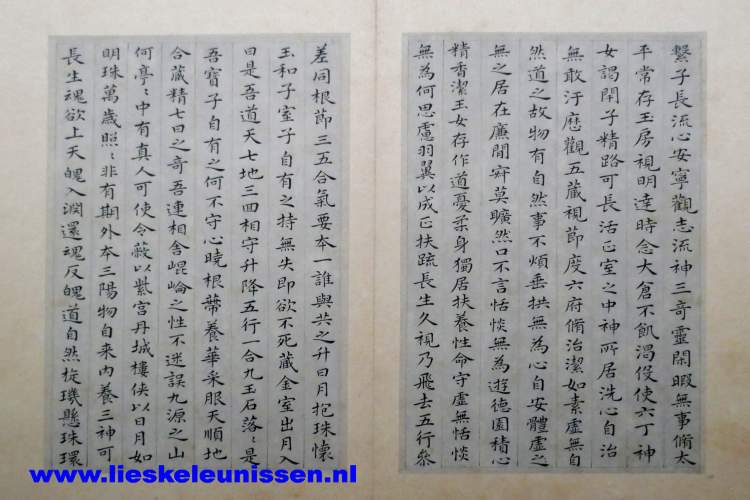 繫子長流心安寧觀志流神三奇靈閑暇無事脩太
平常存玉房視明達時念大倉不飢渴役使六丁神
女謁閇子精路可長活正室之中神所居洗心自治
無敢汙歷觀五藏視節度六府脩治潔如素虛無自
然道之故物有自然事不煩垂拱無為心自安體虛之
無之居在廉間寂莫曠然口不言恬惔無為遊德園積心
精香潔玉女存作道憂柔身獨居扶養性命守虛無恬惔
無為何思慮羽翼以成正扶疏長生久視乃飛去五行參
差同根節三五合氣要本一誰與共之升日月抱珠懷
玉和子室子自有之持無失即欲不死藏金室出月入
日是吾道天七地三四相守升降五行一合九玉石落〻是
吾寶子自有之何不守心曉根蔕養華采服天順地
合藏精七日之奇吾連相舍崐崘之性不迷誤九源之山
何亭〻中有真人可使令蔽以紫宮丹城樓俠以日月如
明珠萬歲照〻非有期外本三陽物自来內養三神可
長生魂欲上天魄入淵還魂反魄道自然旋璣懸珠環
www.lieskeleunissen.nl